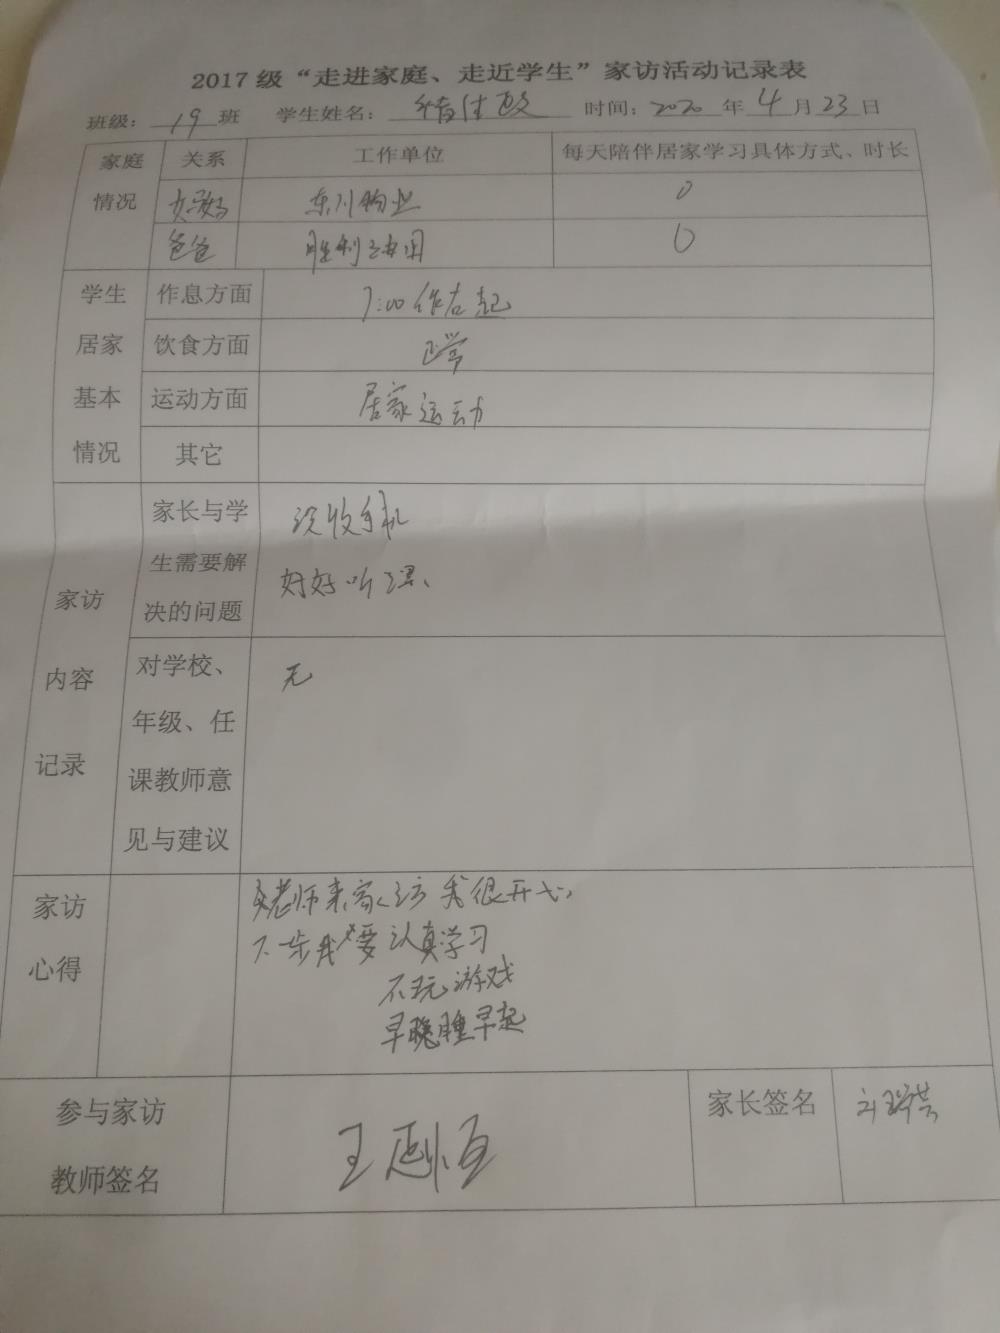 2017级“走进家庭、走近学生”家访活动记录表
班级：19班 学生姓名： 时间：2020年4月23日
家庭情况 关系 工作单位 每天陪伴居家学习具体方式、时长
妈妈 东川物业 0
爸爸 胜利 0
学生居家基本情况 作息方面 7:00作右起
饮食方面 正常
运动方面 居家运动
其它
家访内容记录 家长与学生需要解决的问题 没收手机
好好听课、
对学校、年级、任课教师意见与建议 无
家访心得 老师来家访我很开心
下一步我要认真学习
不玩游戏
早睡早起
参与家访教师签名 王 家长签名